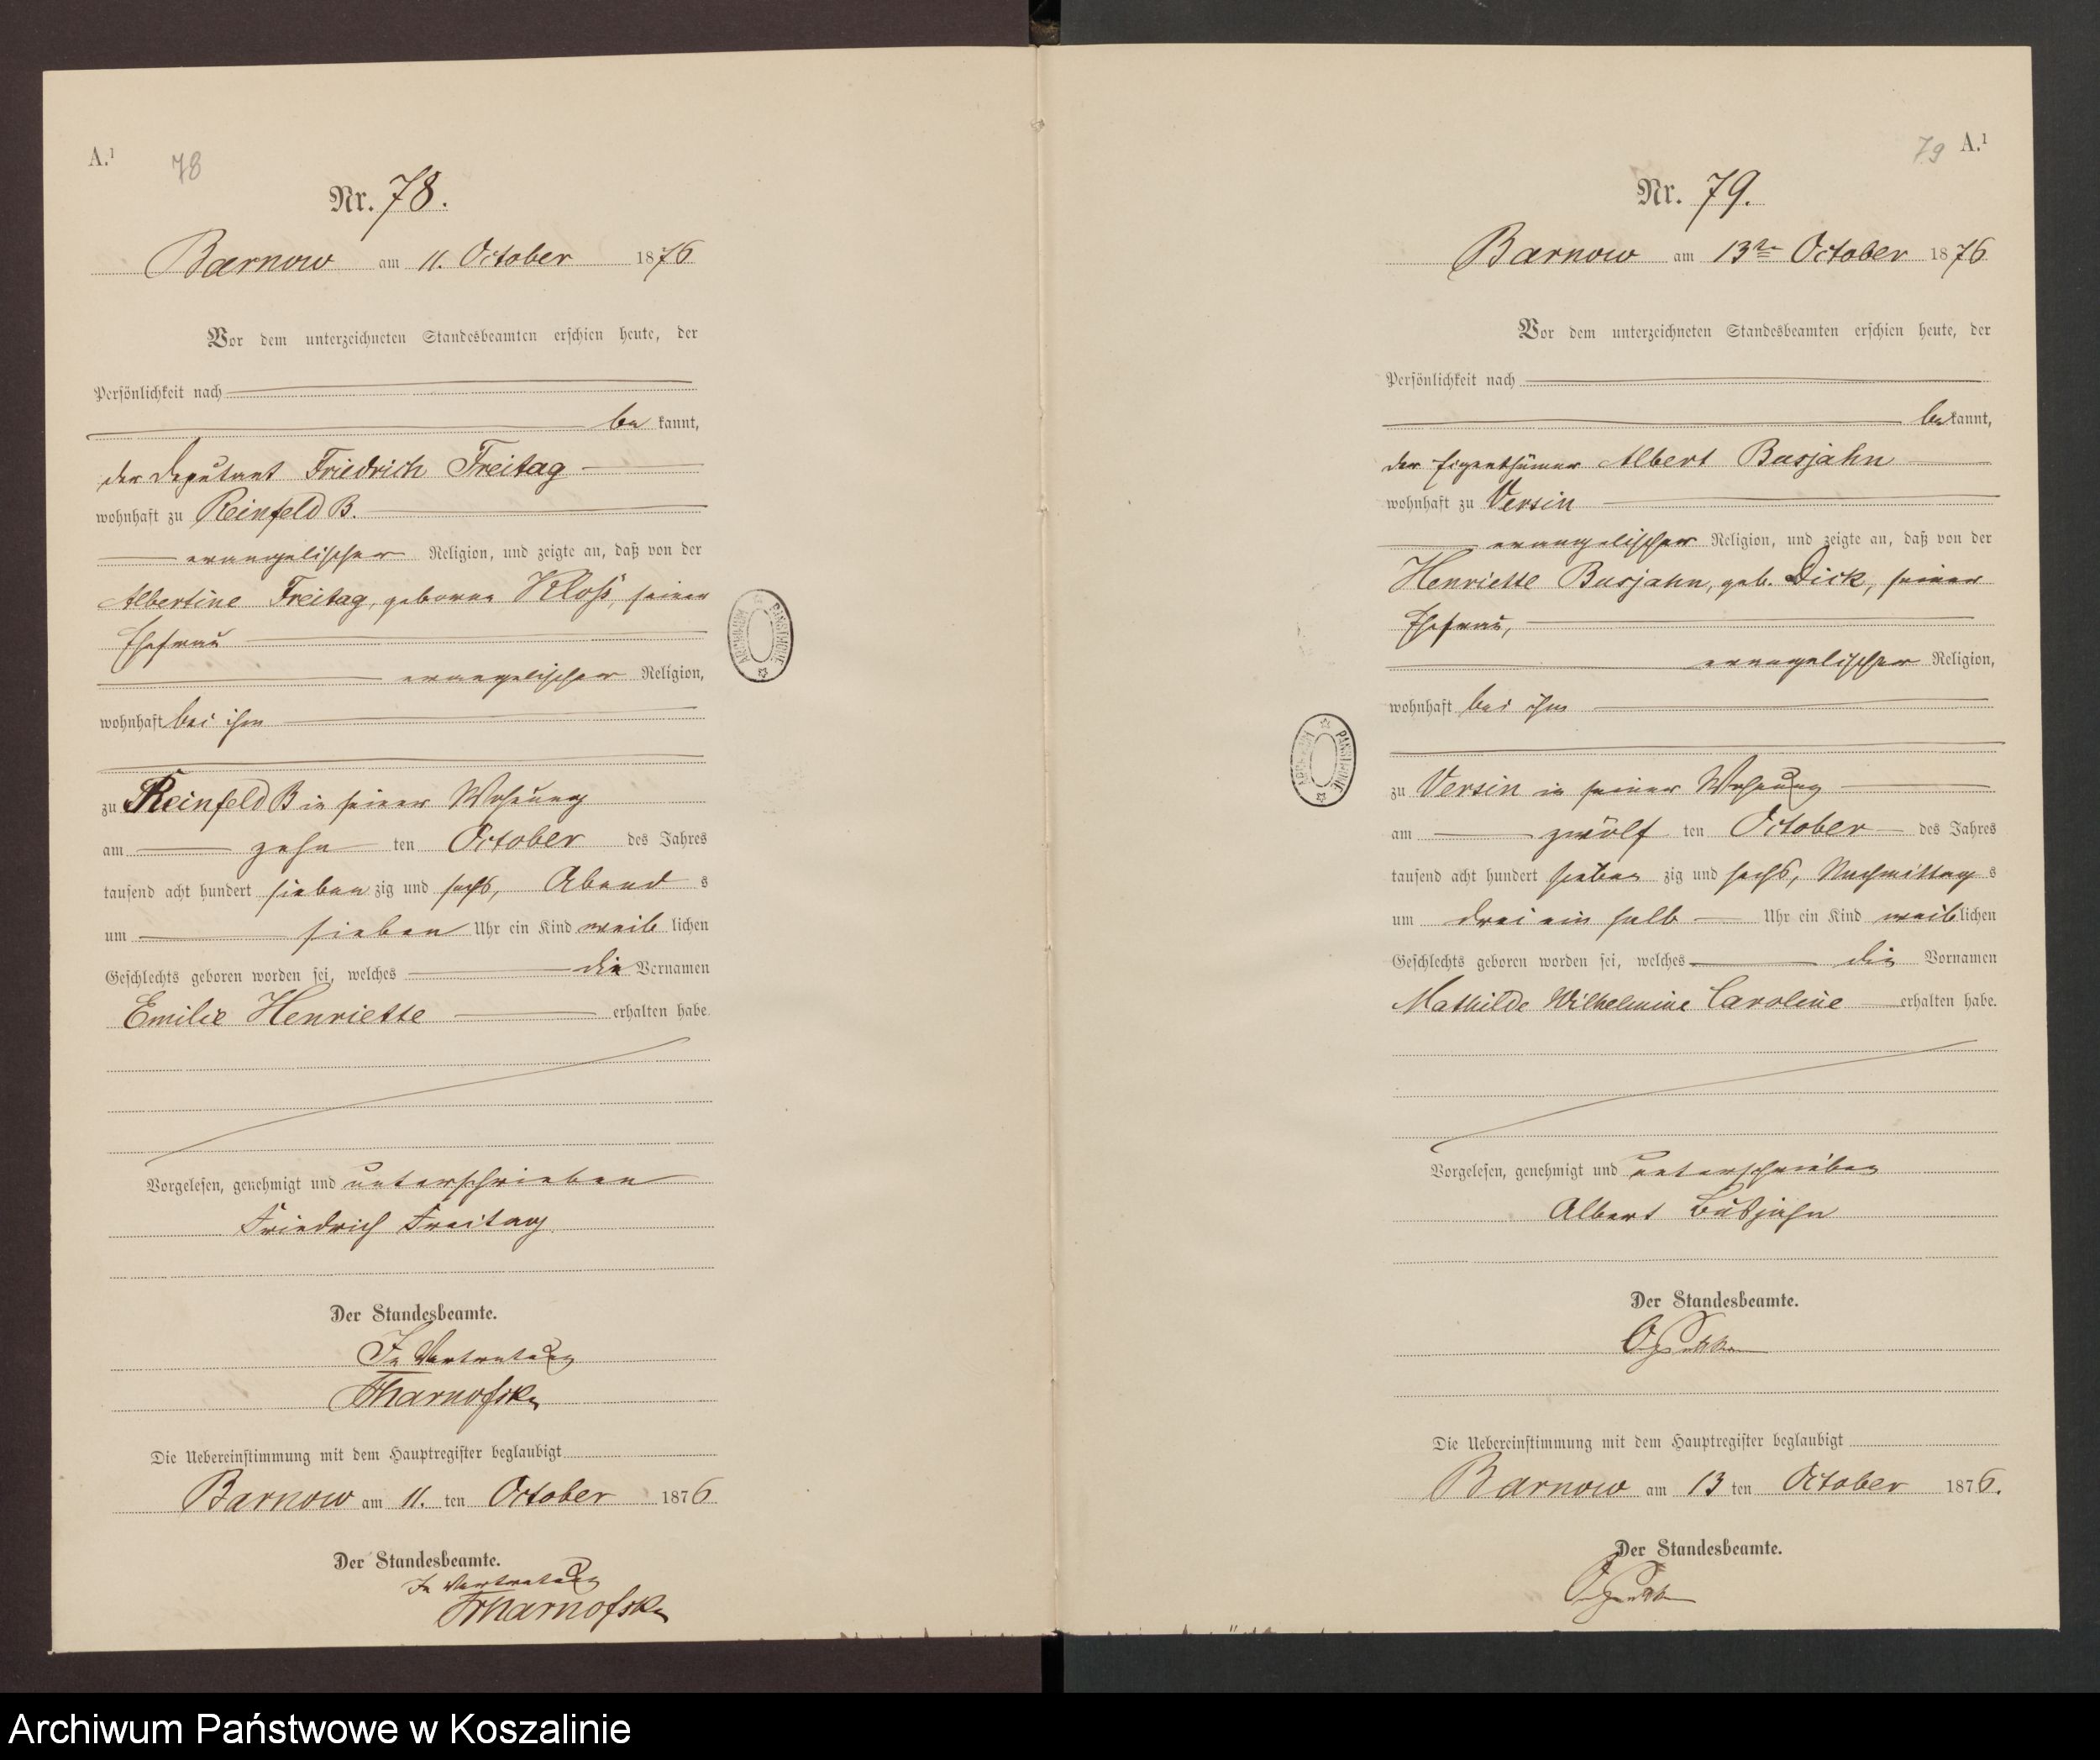 A.¹ 78
Nr. 78.
Barnow am 11. October 1876
Vor dem unterzeichneten Standesbeamten erschien heute, der
Persönlichkeit nach
be kannt,
der Deputant Friedrich Freitag
wohnhaft zu Reinfeld B.
evangelischer Religion, und zeigte an, daß von der
Albertine Freitag, geborene Kloß, seiner
Ehefrau
evangelischer Religion,
wohnhaft bei ihm
zu Reinfeld B in seiner Wohnung
am zehn ten October des Jahres
tausend acht hundert sieben zig und sechs, Abend s
um sieben Uhr ein Kind weib lichen
Geschlechts geboren worden sei, welches die Vornamen
Emilie Henriette erhalten habe
Vorgelesen, genehmigt und unterschrieben
Friedrich Freitag
Der Standesbeamte.
In Vertretung
Die Uebereinstimmung mit dem Hauptregister beglaubigt
Barnow am 11. ten October 1876
Der Standesbeamte.
In Vertretung
ARCHIWUM PAŃSTWOWE
79 A.¹
Nr. 79.
Barnow am 13ten October 1876
Vor dem unterzeichneten Standesbeamten erschien heute, der
Persönlichkeit nach
be kannt,
der Eigenthümer Albert Busjahn
wohnhaft zu Versin
evangelischer Religion, und zeigte an, daß von der
Henriette Busjahn, geb. Dick, seiner
Ehefrau,
evangelischer Religion,
wohnhaft bei ihm
zu Versin in seiner Wohnung
am zwölf ten October des Jahres
tausend acht hundert sieben zig und sechs, Nachmittag s
um drei ein halb Uhr ein Kind weiblichen
Geschlechts geboren worden sei, welches die Vornamen
Mathilde Wilhelmine Caroline erhalten habe.
Vorgelesen, genehmigt und unterschrieben
Albert Bußjahn
Der Standesbeamte.
Die Uebereinstimmung mit dem Hauptregister beglaubigt
Barnow am 13 ten October 1876.
Der Standesbeamte.
ARCHIWUM PAŃSTWOWE
Archiwum Państwowe w Koszalinie